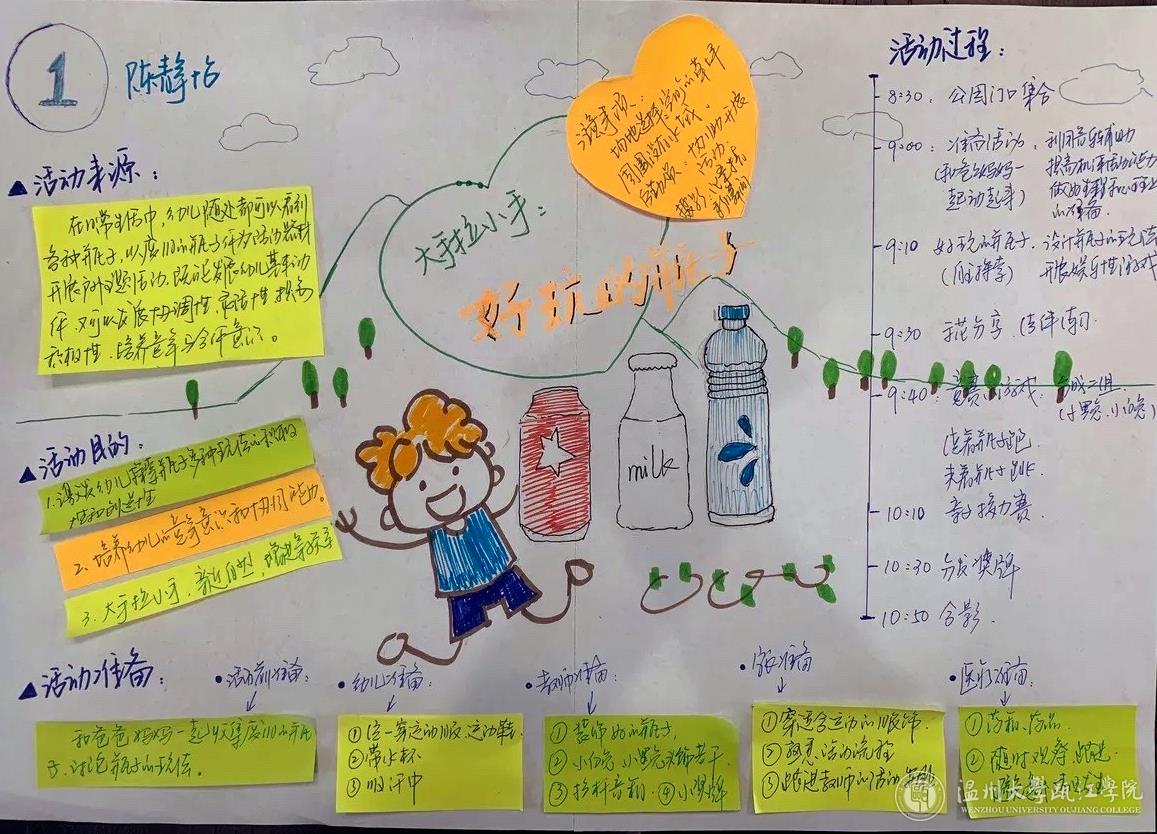 1
陈静怡
▲活动来源：
在日常生活中，幼儿随处都可以看到
各种瓶子，以废旧的瓶子作为活动器材
开展户外主题活动，既能发展幼儿基本动
作，又可以发展协调性、灵活性、提高
积极性，培养竞争与合作意识。
大手拉小手：
好玩的瓶子
注意事项：
场地选择
周围没有水域。
活动
活动过程：
8:30：公园门口集合
9:00：准备活动：利用音乐辅助
(和爸爸妈妈一
起动起来)
提高机体活动能力
做好生理和心理上
的准备.
9:10 好玩的瓶子：设计瓶子的玩法
开展娱乐性游戏
9:30 示范分享
9:40：竞赛小游戏：分成二组.
(小黑兔、小白兔)
夹着瓶子跳.
10:10 亲子接力赛.
10:30 分发奖牌
10:50 合影.
▲活动目的：
1.激发幼儿探索瓶子多种玩法的积极
性和创造性
2、培养幼儿的竞争意识和协作能力。
3.大手拉小手，亲近自然，增进亲子关系
milk
▲活动准备：
•活动前准备：
和爸爸妈妈一起收集废旧的瓶
子，讨论瓶子的玩法。
•幼儿准备：
①统一穿运动服、运动鞋.
②带水杯
③吸汗巾
•教师准备：
①装饰好的瓶子,
②小白兔、小黑兔头饰若干
③拉杆音箱. ④小奖牌
•家长准备
①穿适合运动的服饰.
②熟悉活动流程
③跟进教师的活动
•医疗准备：
①药箱、药品
②随时观察、跟进
温州大学瓯江学院
WENZHOU UNIVERSITY OUJIANG COLLEGE